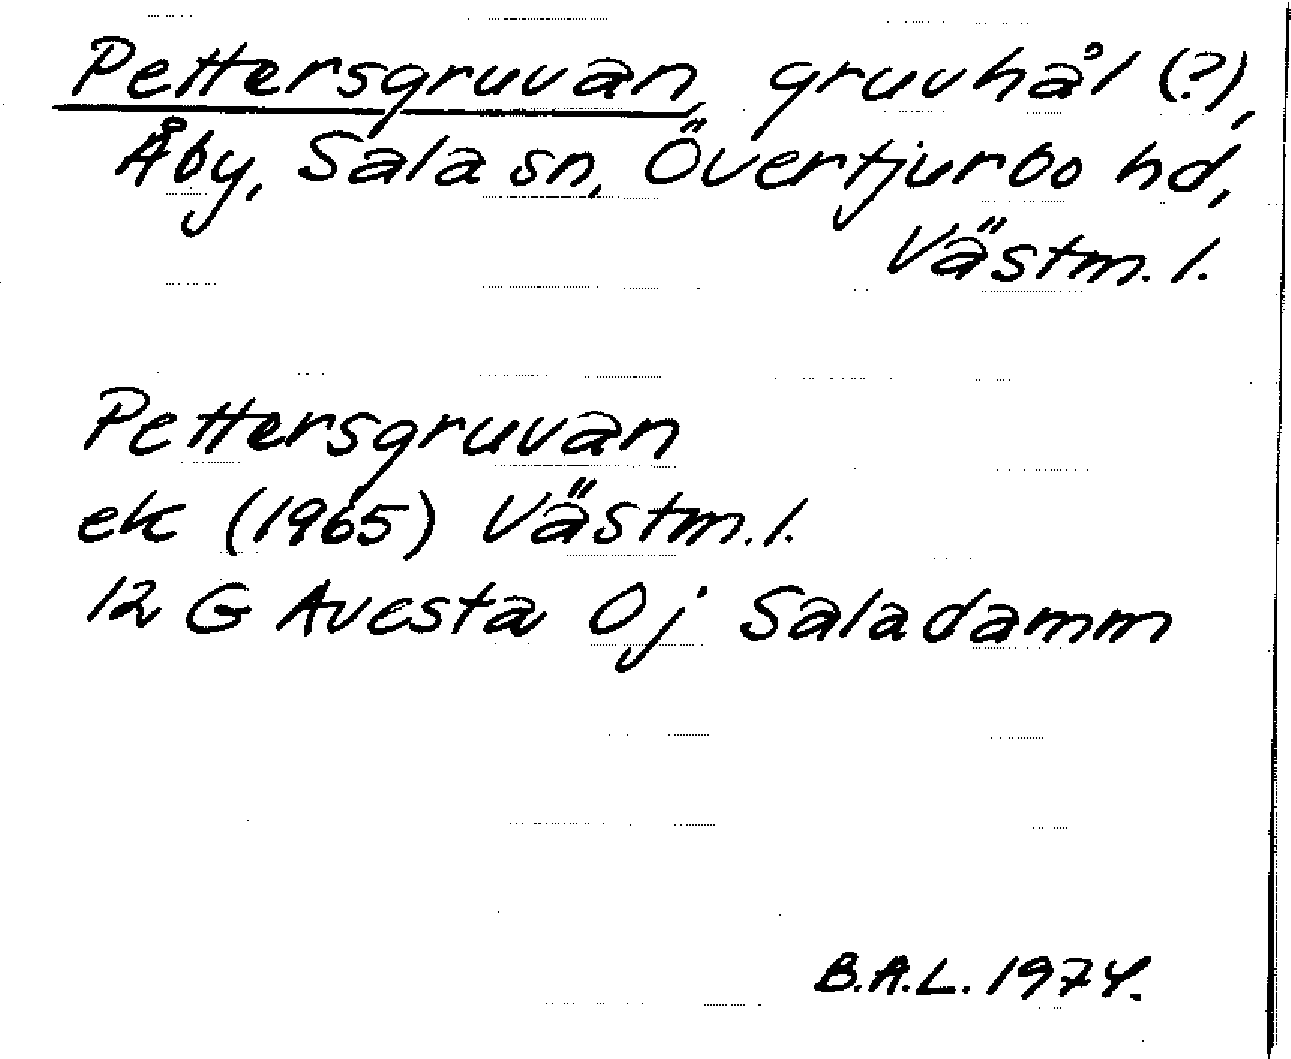 Pettersgruvan, gruvhål (?),
Åby, Sala sn, Övertjurbo hd,
Västm. l.
Pettersgruvan
ek (1965) Västm. l.
12 G Avesta 0j Saladamm
B.A.L. 1974.